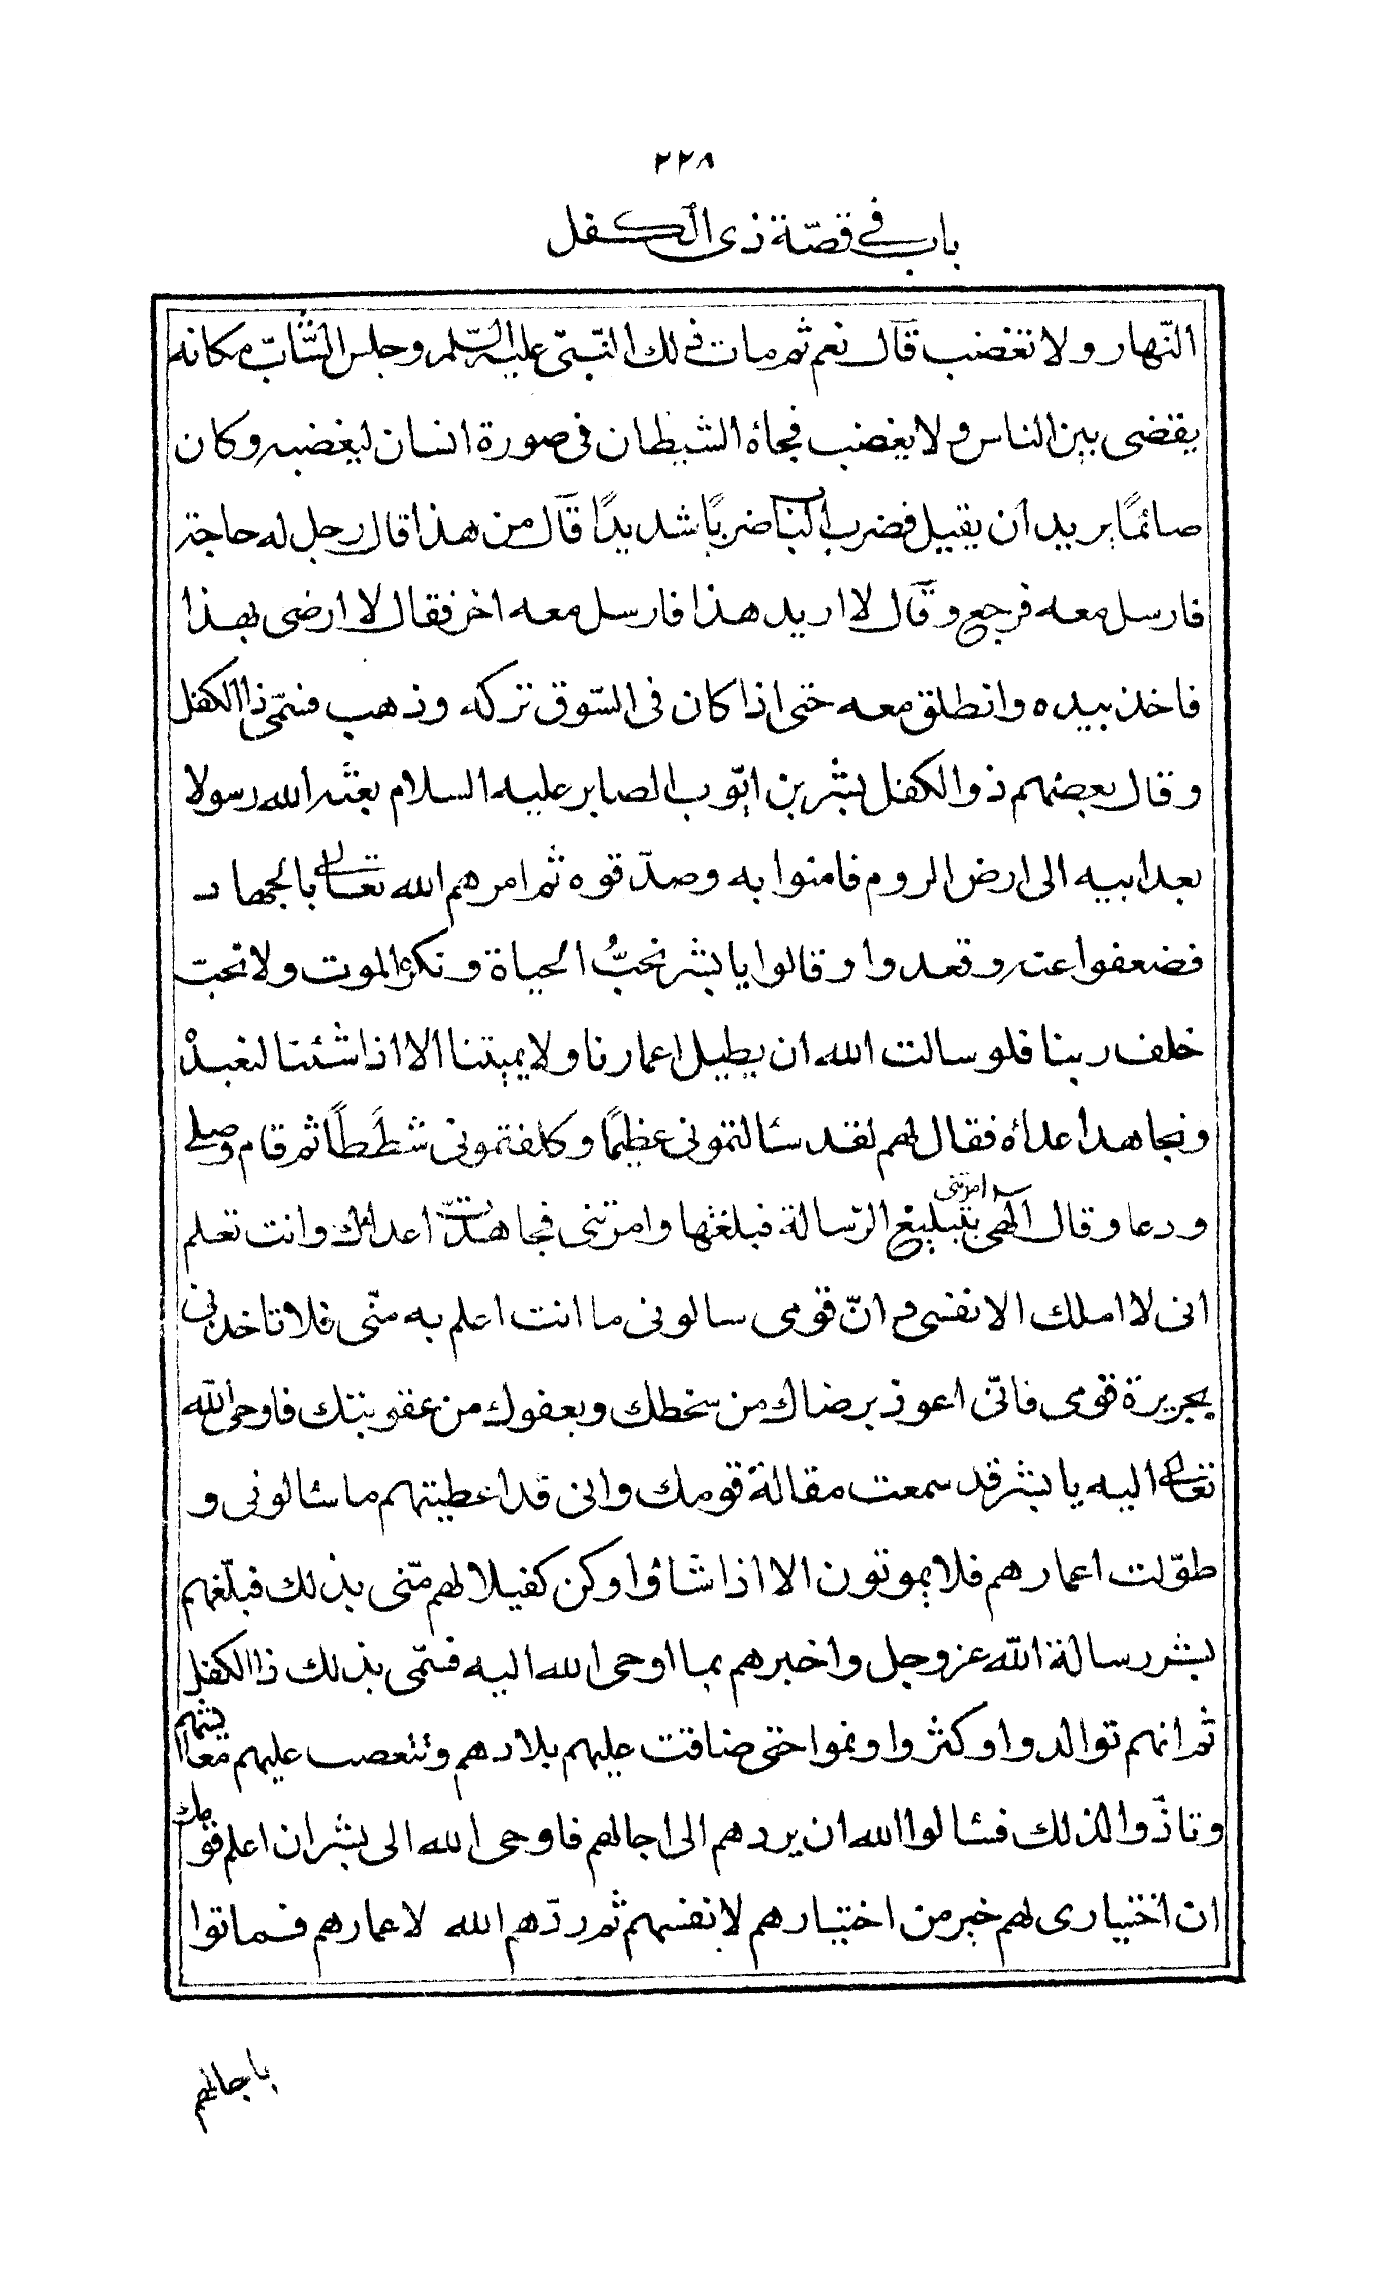 ٢٢٨
باب في قصّة ذى الكفل
النّهار ولا تغضب قال نعم ثم مات ذلك النّبىّ عليه السّلم وجلس الشّابّ مكانه
يقضى بين الناس ولا يغضب فجاءه الشيطان فى صورة انسان ليغضبه وكان
صائمًا يريد ان يقيل فضرب الباب ضربًا شديدًا قال من هذا قال رجل له حاجة
فارسل معه فرجع وقال لا اريد هذا فارسل معه اخر فقال لا ارضى بهذا
فاخذ بيده وانطلق معه حتى اذا كان فى السّوق تركه وذهب فسمّى ذا الكفل
وقال بعضهم ذو الكفل بشر بن ايّوب الصابر عليه السلام بعثه الله رسولا
بعد ابيه الى ارض الروم فامنوا به وصدّقوه ثم امرهم الله تعالى بالجهاد
فضعفوا عنه وقعدوا وقالوا يا بشر نحبُّ الحياة ونكره الموت ولا نحبّ
خلف ربنا فلو سالت الله ان يطيل اعمارنا ولا يميتنا الا اذا شئنا لنعبدْ
ونجاهد اعداءه فقال لهم لقد سئالتمونى عظيمًا وكلفتمونى شَطَطًا ثم قام وصلى
ودعا وقال الهى امرتنى بتبليغ الرّسالة فبلغتها وامرتنى فجاهدتّ اعدائك وانت تعلم
انى لا املك الا نفسى وانّ قومى سالونى ما انت اعلم به منّى فلا تاخذنى
بجريرة قومى فانّى اعوذ برضاك من سخطك وبعفوك من عقوبتك فاوحى الله
تعالى اليه يا بشر قد سمعت مقالة قومك وانى قد اعطيتهم ما سئالونى و
طوّلت اعمارهم فلا يموتون الا اذا شاؤا وكن كفيلا لهم منّى بذلك فبلّغهم
بشر رسالة الله عز وجل واخبرهم بما اوحى الله اليه فسمّى بذلك ذا الكفل
ثم انهم توالدوا وكثروا ونموا حتى ضاقت عليهم بلادهم وتنعصب عليهم معايشهم
وتاذّوا لذلك فسئالوا الله ان يردهم الى اجالهم فاوحى الله الى بشر ان اعلم قومك
ان اختيارى لهم خير من اختيارهم لانفسهم ثم ردّهم الله لاعمارهم فماتوا
باجالهم